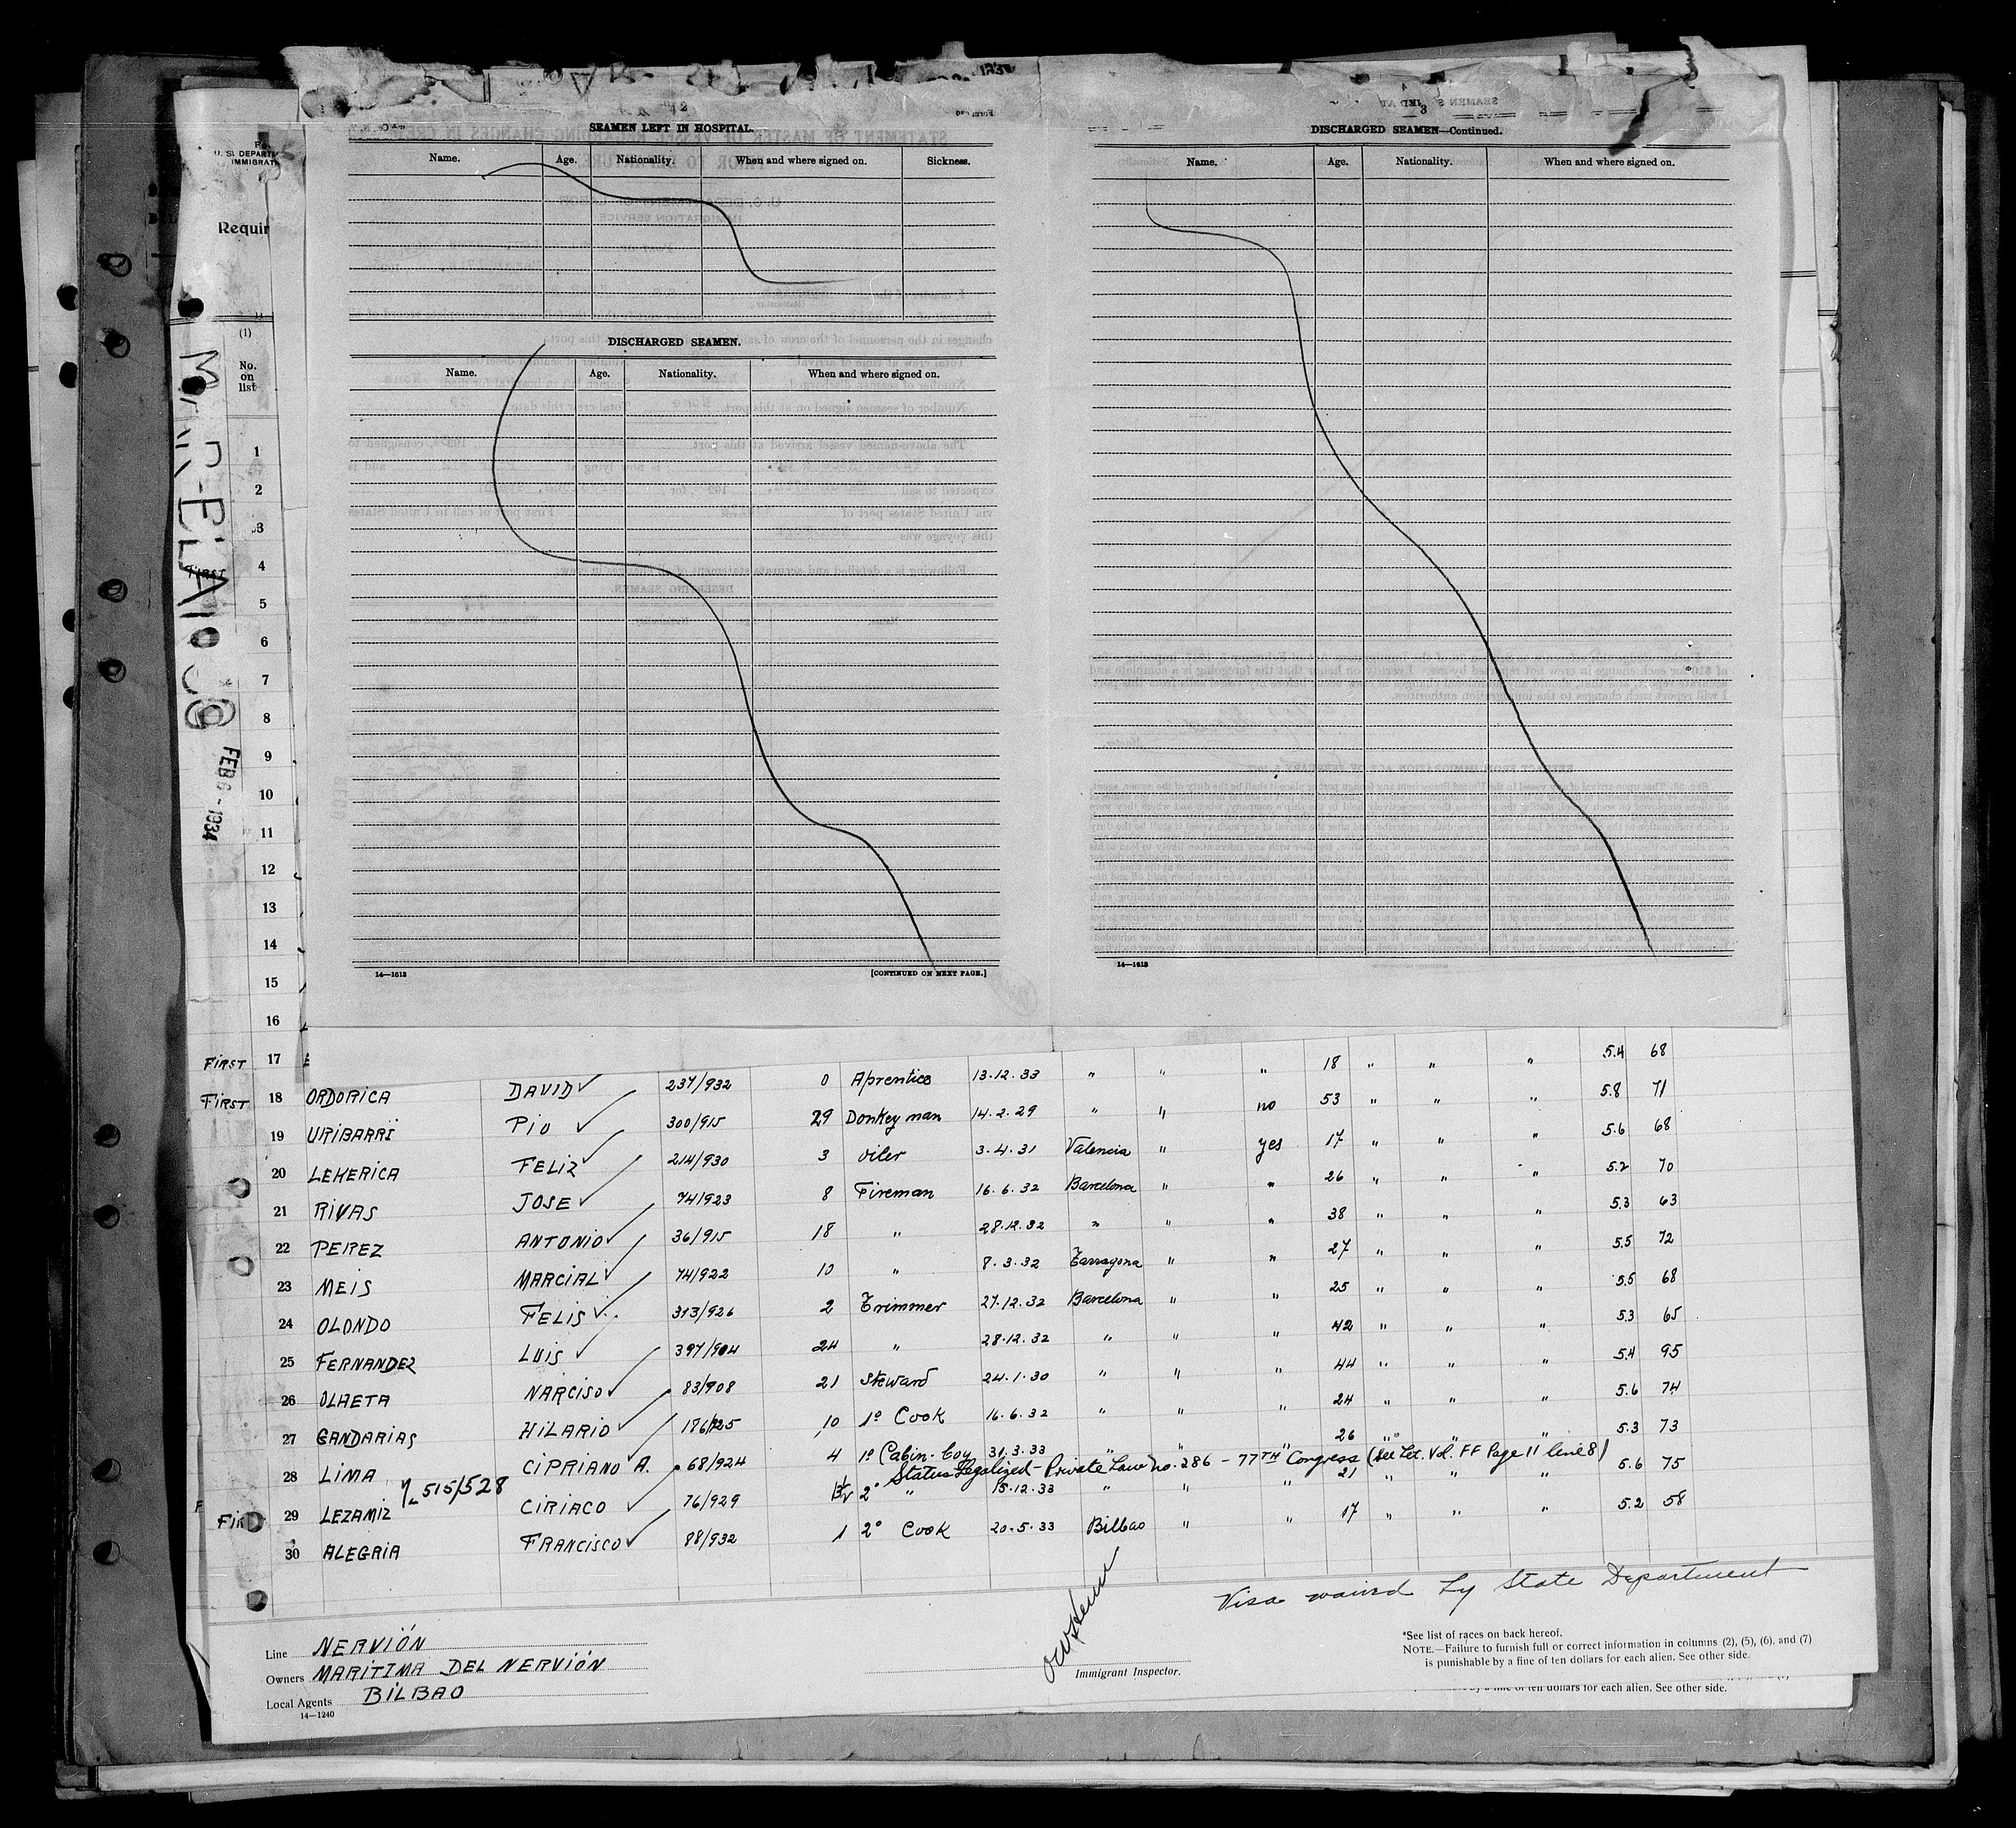 SEAMEN LEFT IN HOSPITAL.
Name. Age. Nationality. When and where signed on. Sickness.
DISCHARGED SEAMEN.
Name. Age. Nationality. When and where signed on.
14—1613 [CONTINUED ON NEXT PAGE.]
3
DISCHARGED SEAMEN—Continued.
Name. Age. Nationality. When and where signed on.
14—1613
U. S. DEPARTM
IMMIGRATI
Requir
(1)
No.
on
list
1
2
3
4
5
6
7
8
9
10
11
12
13
14
15
16
FEB 6 - 1934
FIRST 17
FIRST 18 ORDORICA DAVID 237/932 0 Aprentice 13.12.33 " " " 18 " " " 5.4 68
19 URIBARRI PIO 300/915 29 Donkey man 14.2.29 " " no 53 " " " 5.8 71
20 LEKERICA FELIZ 214/930 3 oiler 3.4.31 Valencia " yes 17 " " " 5.6 68
21 RIVAS JOSE 74/923 8 Fireman 16.6.32 Barcelona " " 26 " " " 5.2 70
22 PEREZ ANTONIO 36/915 18 " 28.12.32 " " " 38 " " " 5.3 63
23 MEIS MARCIAL 74/922 10 " 8.3.32 Tarragona " " 27 " " " 5.5 72
24 OLONDO FELIS 313/926 2 Trimmer 27.12.32 Barcelona " " 25 " " " 5.5 68
25 FERNANDEZ LUIS 397/904 24 " 28.12.32 " " " 42 " " " 5.3 65
26 OLAETA NARCISO 83/908 21 Steward 24.1.30 " " " 44 " " " 5.4 95
27 GANDARIAS HILARIO 186/925 10 1º Cook 16.6.32 " " " 24 " " " 5.6 74
28 LIMA CIPRIANO A. 68/924 4 1º Cabin-boy 31.3.33 " " " 26 " " " 5.3 73
Status Legalized - Private Law no. 286 - 77TH Congress (See Let. Vol. FF Page 11 line 8)
515/528
29 LEZAMIZ CIRIACO 76/929 2º " 15.12.33 " " " 21 " " " 5.6 75
30 ALEGRIA FRANCISCO 88/932 1 2º Cook 20.5.33 Bilbao " " 17 " " " 5.2 58
Visa waived by State Department
Line NERVIÓN
Owners MARITIMA DEL NERVIÓN
Local Agents BILBAO
14—1240
Immigrant Inspector.
*See list of races on back hereof.
NOTE.—Failure to furnish full or correct information in columns (2), (5), (6), and (7)
is punishable by a fine of ten dollars for each alien. See other side.
by a fine of ten dollars for each alien. See other side.